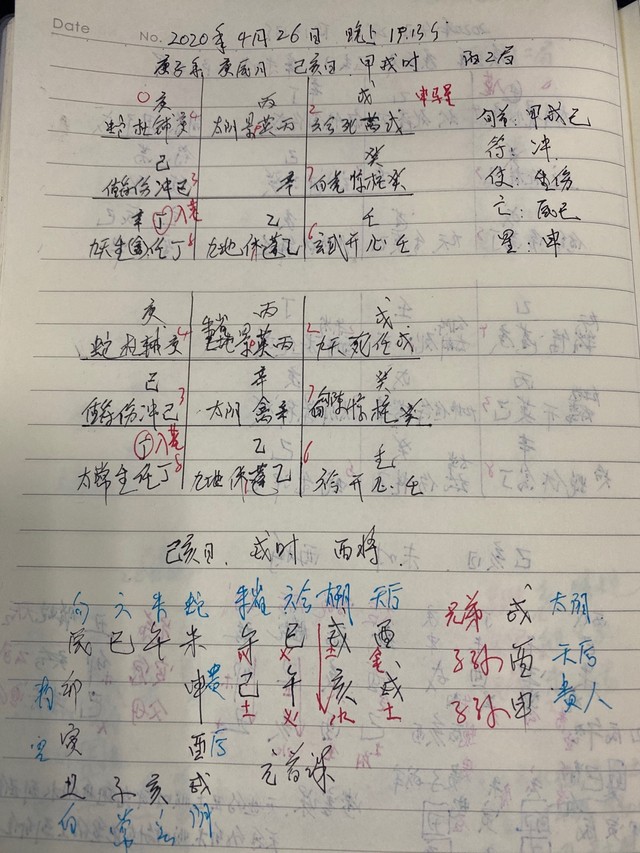 Date No. 2020年4月26日 晚上19:13分
庚子年 庚辰月 己亥日 甲戌时 阳2局
0 庚 丙 2 戊 申马星 旬首:甲戌己
蛇杜辅庚4 太阴景英丙 六合死禽戊 符:冲
己 癸 使:伤
值符伤冲己3 辛 7 白虎惊柱癸 亡:辰巳
辛 丁入墓 乙 壬 星:申
九天生任丁8 九地休蓬乙 6 玄武开心壬
庚 丙 戊
蛇杜辅庚4 景英丙 2 九天死任戊
己 辛 癸
值符伤冲己3 太阴禽辛 7 惊柱癸
丁入墓 乙 6 壬
太常生任丁8 九地休蓬乙 六合开心壬
己亥日 戌时 酉将
勾 六 朱 蛇 朱雀 六合 天后 兄弟 戌 太阴
辰 巳 午 未 午 巳 戌 酉 子孙 酉 天后
勾 卯 申 贵 己 午 亥 戌 子孙 申 贵人
火 火 土 金
土 火 水 土
寅 酉 后 元首课
丑 子 亥 戌
白 常 玄 阴